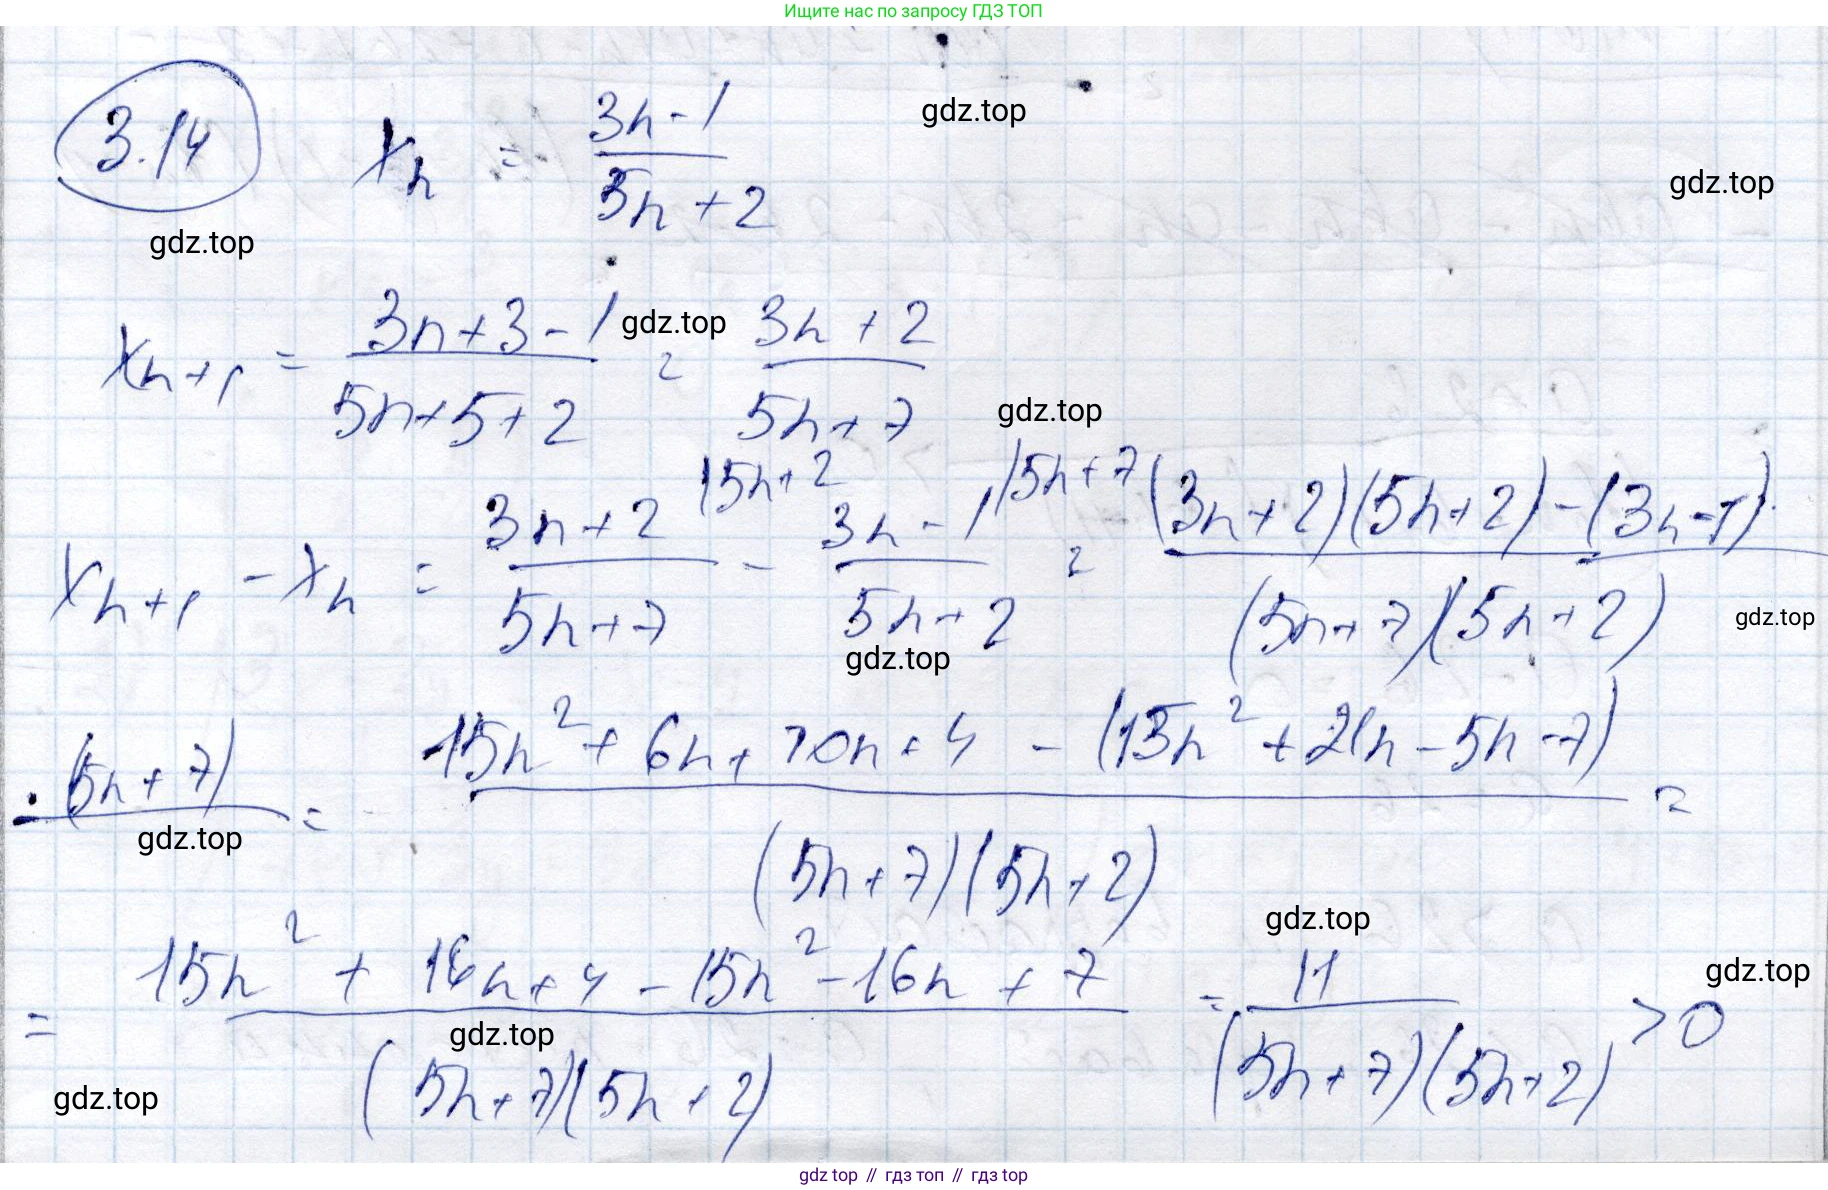 Ищите нас по запросу ГДЗ ТОП
3.14 xₙ = (3n-1)/(5n+2)
gdz.top
gdz.top
gdz.top
xₙ₊₁ = (3n+3-1)/(5n+5+2) = (3n+2)/(5n+7)
gdz.top
gdz.top
xₙ₊₁ - xₙ = (3n+2)/(5n+7) |5n+2 - (3n-1)/(5n+2) |5n+7 = ((3n+2)(5n+2)-(3n-1)·
(5n+7)(5n+2)
gdz.top
gdz.top
·(5n+7) = (15n²+6n+10n+4 - (15n²+21n-5n-7))/((5n+7)(5n+2)) =
gdz.top
gdz.top
= (15n² + 16n+4 - 15n² - 16n + 7)/((5n+7)(5n+2)) = 11/((5n+7)(5n+2)) > 0
gdz.top
gdz.top
gdz.top
gdz top // гдз топ // гдз top